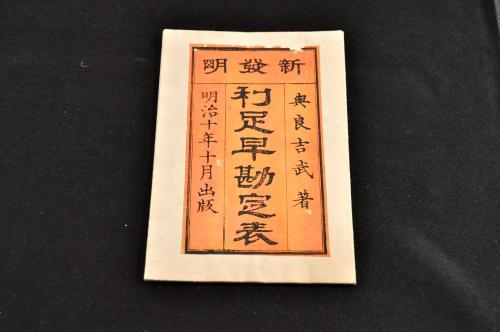 新發明
奥良吉武 著
利足早勘定表
明治十年十月出版